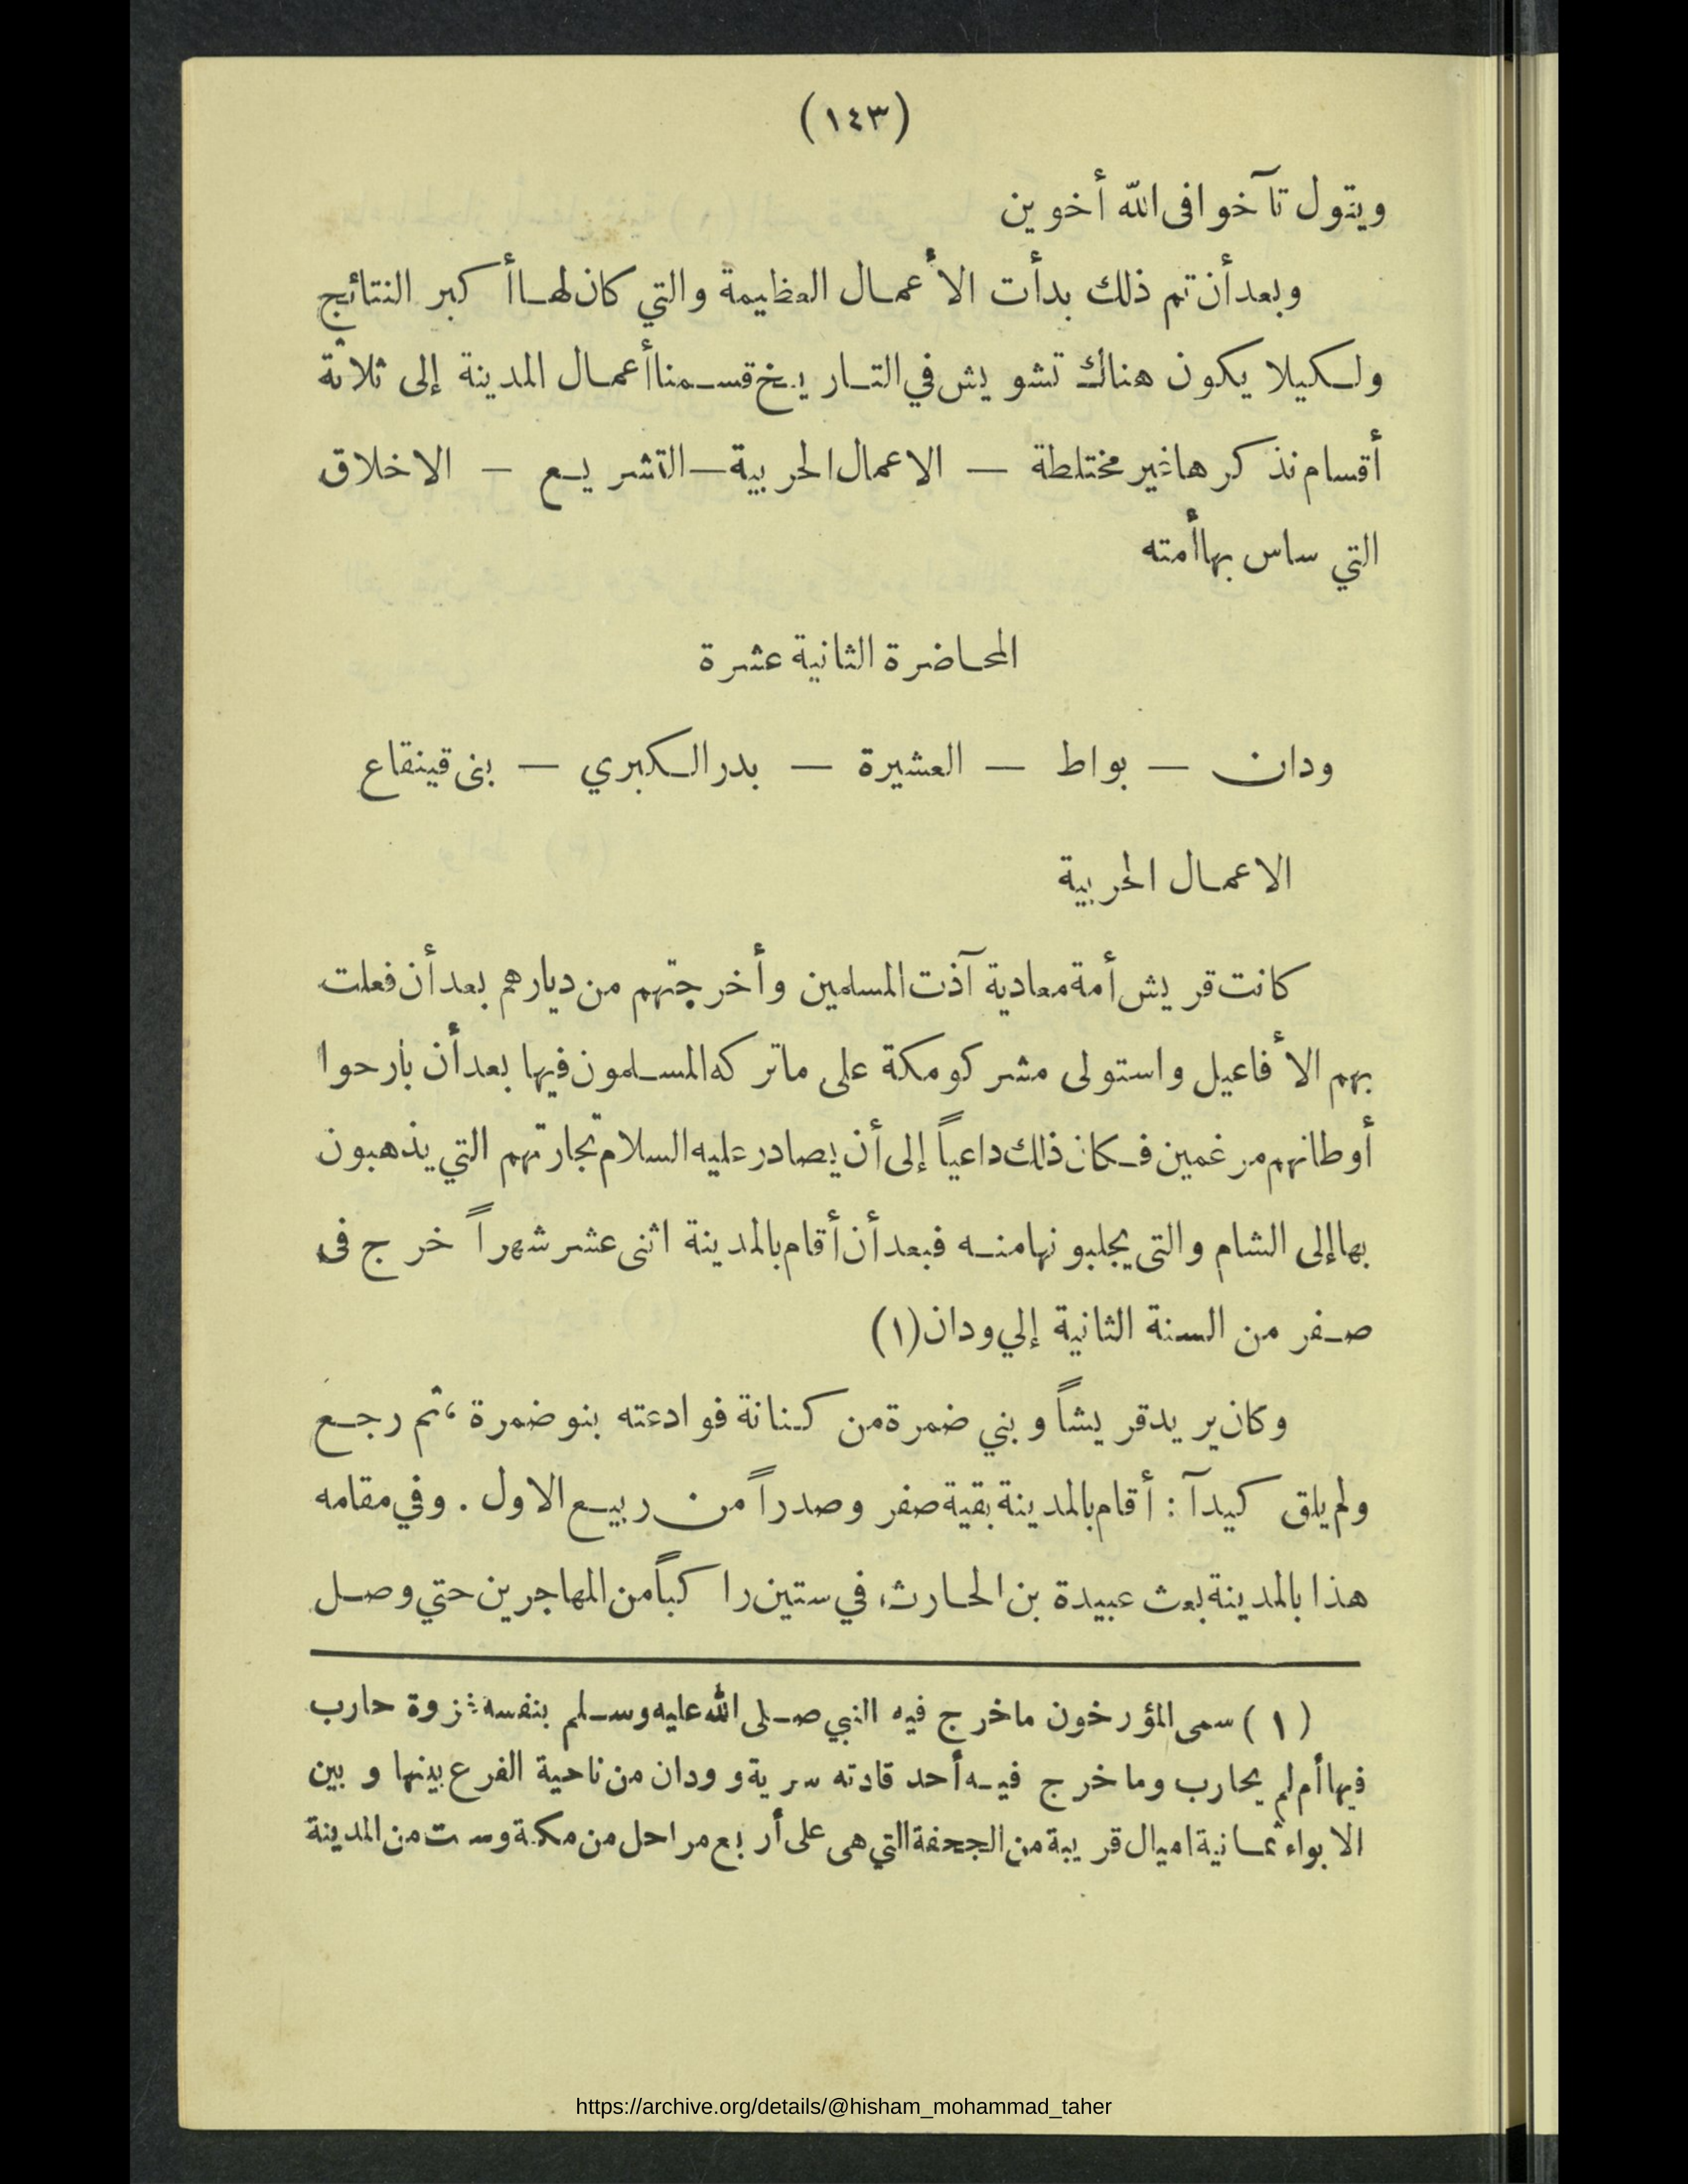 (١٤٣)
ويقول تآخوا فى الله أخوين
وبعد أن تم ذلك بدأت الأعمال العظيمة والتي كان لها أكبر النتائج
ولكيلا يكون هناك تشويش في التاريخ قسمنا أعمال المدينة إلى ثلاثة
أقسام نذكرها غير مختلطة — الاعمال الحربية — التشريع — الاخلاق
التي ساس بها أمته
المحاضرة الثانية عشرة
ودان — بواط — العشيرة — بدر الكبري — بنى قينقاع
الاعمال الحربية
كانت قريش أمة معادية آذت المسلمين وأخرجتهم من ديارهم بعد أن فعلت
بهم الأفاعيل واستولى مشركو مكة على ماتركه المسلمون فيها بعد أن بارحوا
أوطانهم مرغمين فكان ذلك داعياً إلى أن يصادر عليه السلام تجارتهم التي يذهبون
بها إلى الشام والتى يجلبونها منه فبعد أن أقام بالمدينة اثنى عشر شهراً خرج فى
صفر من السنة الثانية إلي ودان (١)
وكان يريد قريشاً وبني ضمرة من كنانة فوادعته بنو ضمرة ، ثم رجع
ولم يلق كيدآ : أقام بالمدينة بقية صفر وصدراً من ربيع الاول . وفي مقامه
هذا بالمدينة بعث عبيدة بن الحارث، في ستين راكباً من المهاجرين حتي وصل
(١) سمى المؤرخون ماخرج فيه النبي صلى الله عليه وسلم بنفسه غزوة حارب
فيها أم لم يحارب وماخرج فيه أحد قادته سرية و ودان من ناحية الفرع بينها وبين
الابواء ثمانية اميال قريبة من الجحفة التي هى على أربع مراحل من مكة وست من المدينة
https://archive.org/details/@hisham_mohammad_taher